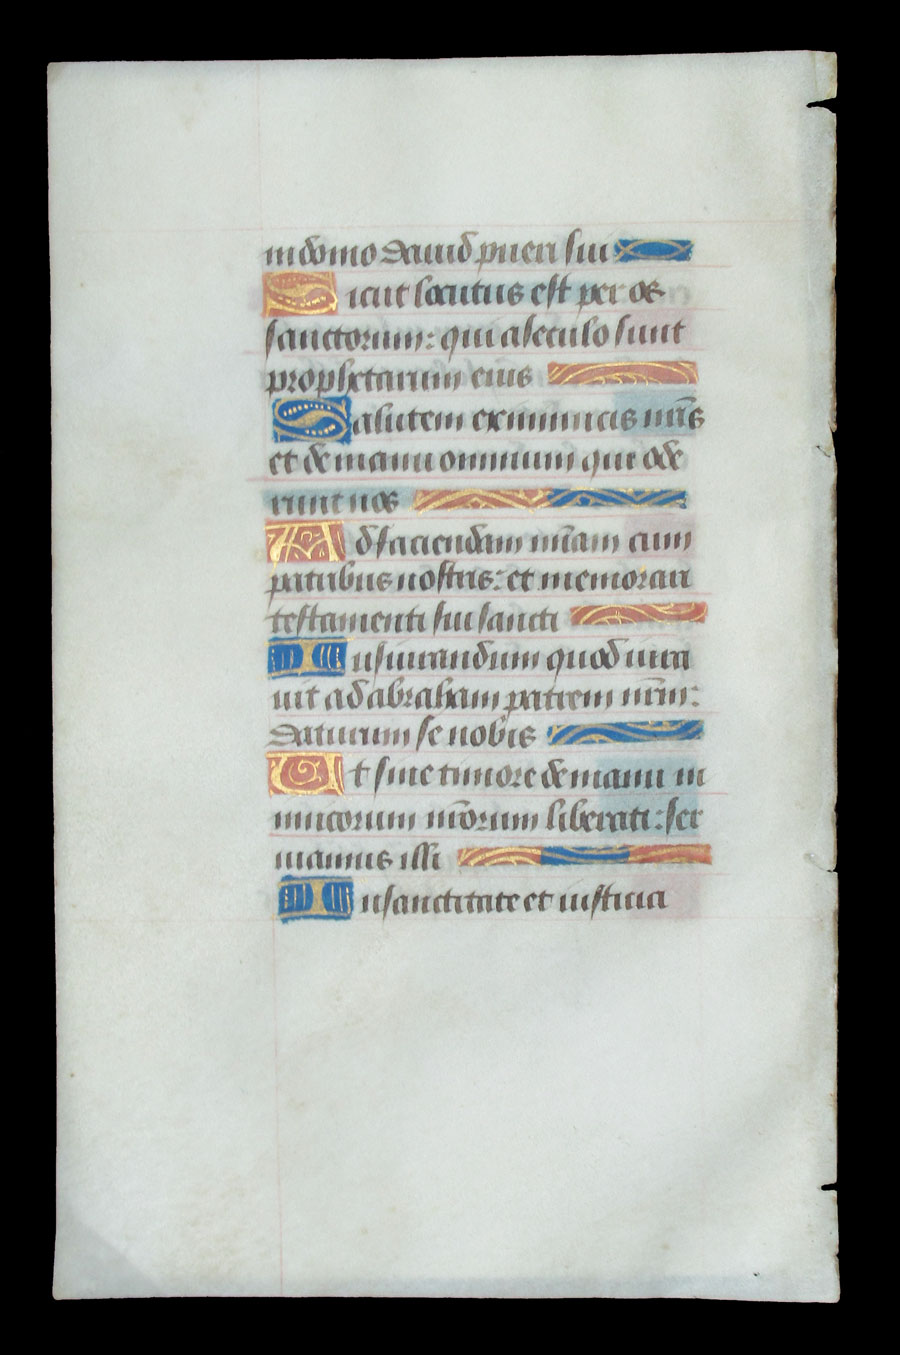 in domo dauid pueri sui
Sicut locutus est per os
sanctorum: qui a seculo sunt
prophetarum eius
Salutem ex inimicis nr̄is
et de manu omnium qui ode
runt nos
Ad faciendam mīam cum
patribus nostris: et memorari
testamenti sui sancti
Iusiurandum quod iura
uit ad abraham patrem nr̄m:
daturum se nobis
Et sine timore de manu in
imicorum nr̄orum liberati: ser
uiamus illi
In sanctitate et iusticia